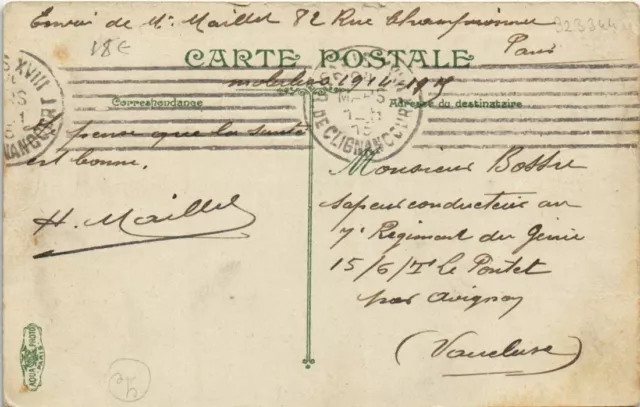 Envoi de Mr Maillet 82 Rue Championnet
Paris
323344
18€
CARTE POSTALE
1914-1915
Correspondance
Adresse du destinataire
XVIII
R. DE CLIGNANCOURT
pense que la santé
est bonne.
H. Maillet
Monsieur Bossu
sapeur conducteur au
7e Régiment du Génie
15/6/T le Pontet
par Avignon
(Vaucluse)
AQUA PHOTO
PARIS